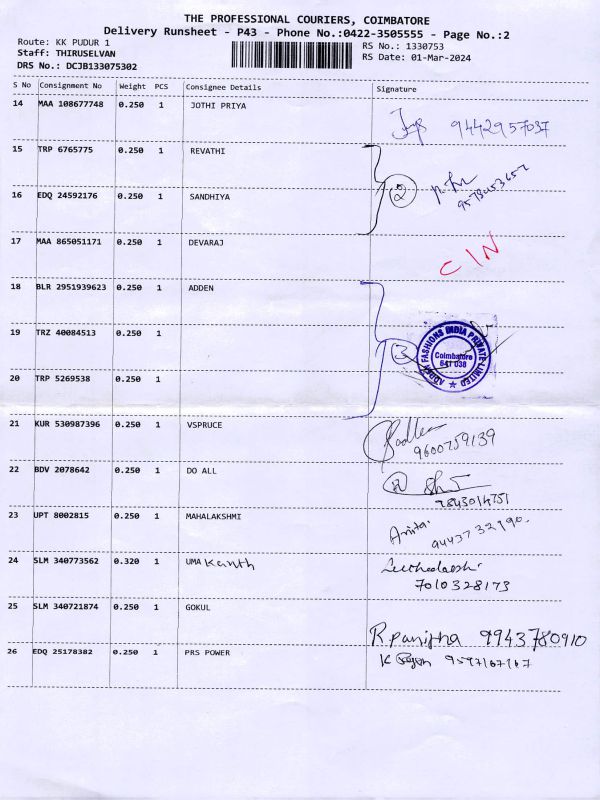 THE PROFESSIONAL COURIERS, COIMBATORE
Delivery Runsheet - P43 - Phone No.:0422-3505555 - Page No.:2
Route: KK PUDUR 1
Staff: THIRUSELVAN
DRS No.: DCJB133075302
RS No.: 1330753
RS Date: 01-Mar-2024
S No Consignment No Weight PCS Consignee Details Signature
14 MAA 108677748 0.250 1 JOTHI PRIYA 9442957037
15 TRP 6765775 0.250 1 REVATHI
16 EDQ 24592176 0.250 1 SANDHIYA
2
17 MAA 865051171 0.250 1 DEVARAJ C/N
18 BLR 2951939623 0.250 1 ADDEN
19 TRZ 40084513 0.250 1
3
ADDEN FASHIONS INDIA PRIVATE LIMITED
Coimbatore
641 038
20 TRP 5269538 0.250 1
21 KUR 530987396 0.250 1 VSPRUCE
9600759139
22 BDV 2078642 0.250 1 DO ALL
23 UPT 8002815 0.250 1 MAHALAKSHMI Anita
24 SLM 340773562 0.320 1 UMA Kanth
7010328173
25 SLM 340721874 0.250 1 GOKUL
9943780910
26 EDQ 25178382 0.250 1 PRS POWER 9597167167